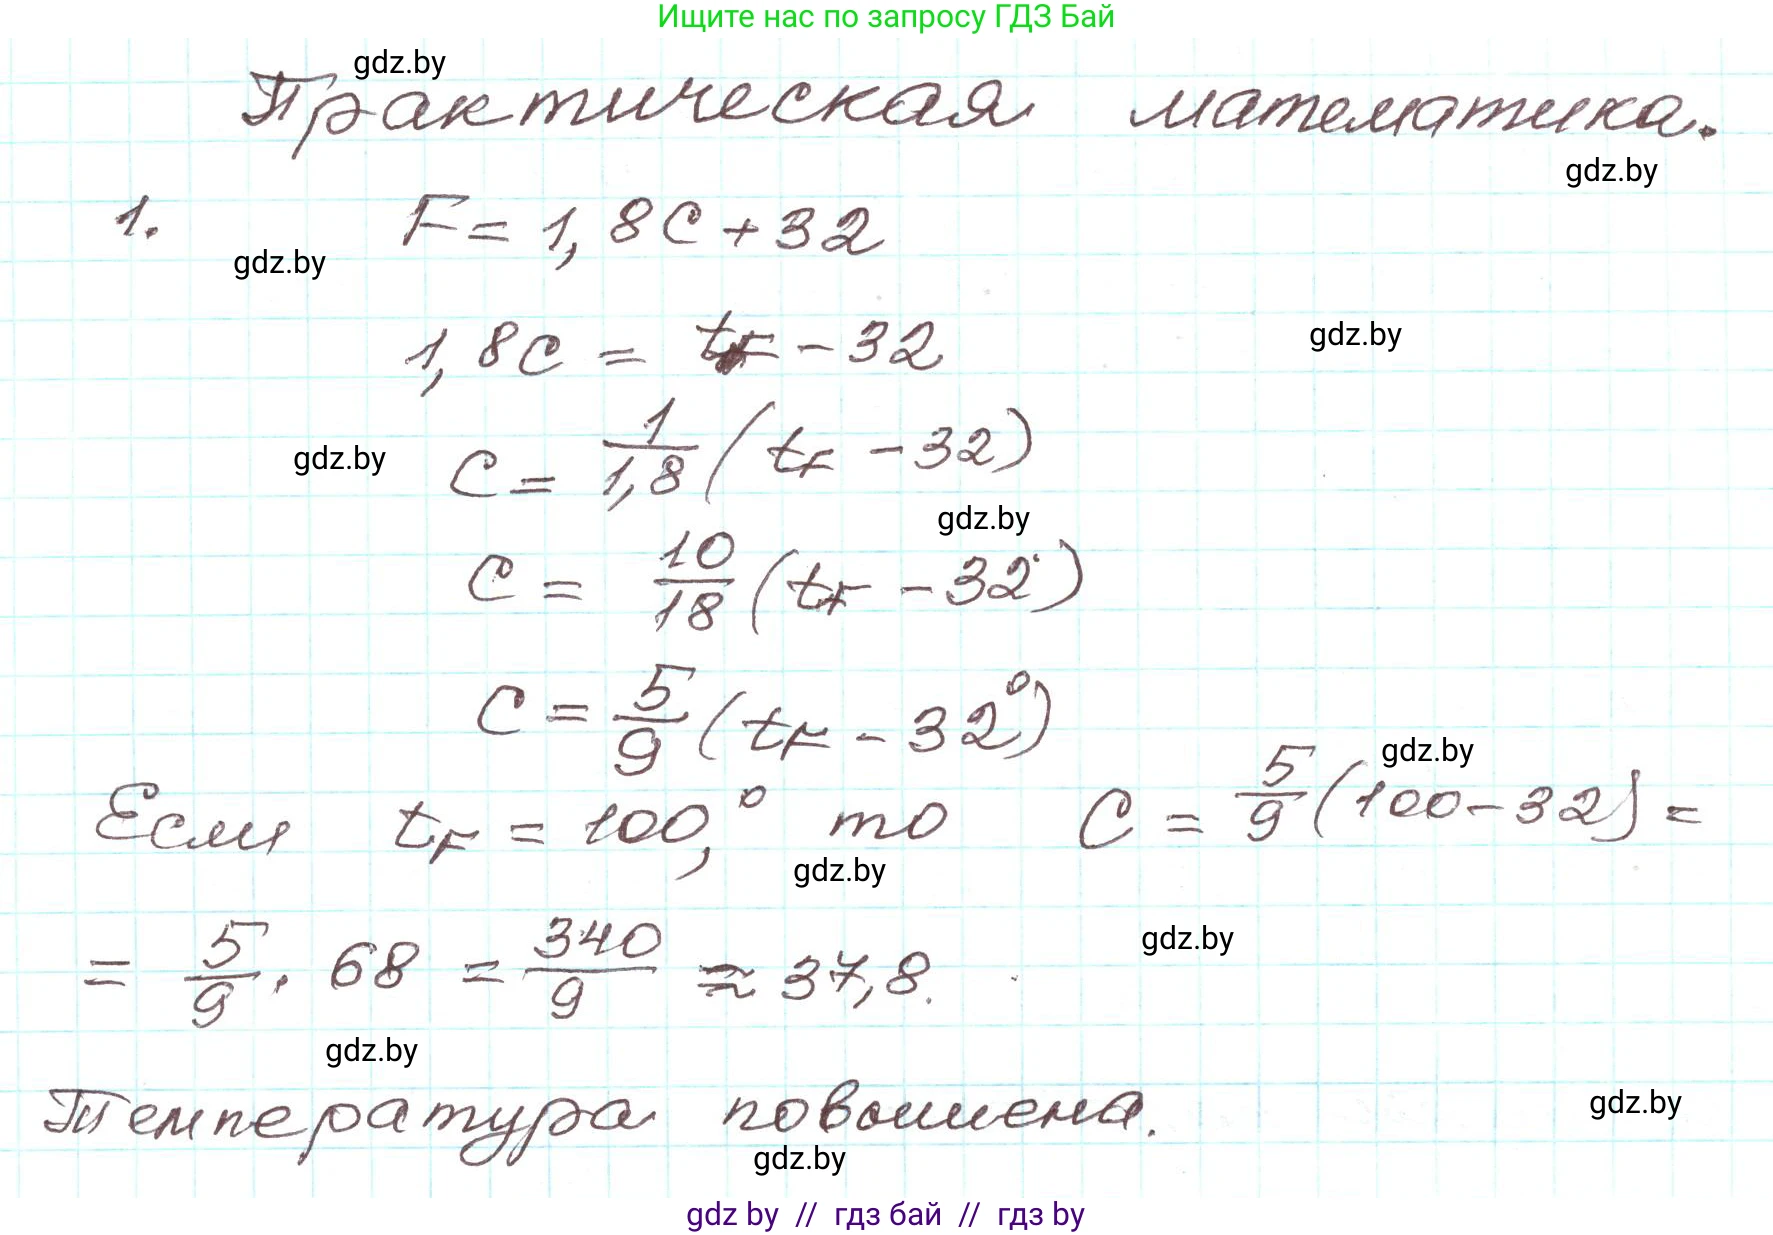 Ищите нас по запросу ГДЗ Бай
gdz.by
Практическая математика.
gdz.by
1. F = 1,8C + 32
gdz.by
1,8C = tF - 32
gdz.by
C = 1/1,8 (tF - 32)
gdz.by
gdz.by
C = 10/18 (tF - 32°)
C = 5/9 (tF - 32°)
gdz.by
Если tF = 100,° то C = 5/9 (100 - 32) =
gdz.by
= 5/9 · 68 = 340/9 ≈ 37,8.
gdz.by
gdz.by
Температура повышена.
gdz.by
gdz.by
gdz by // гдз бай // гдз by